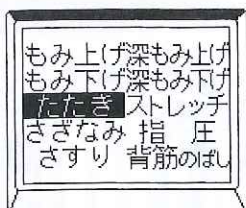 もみ上げ 深もみ上げ
もみ下げ 深もみ下げ
たたき ストレッチ
さざなみ 指圧
さすり 背筋のばし